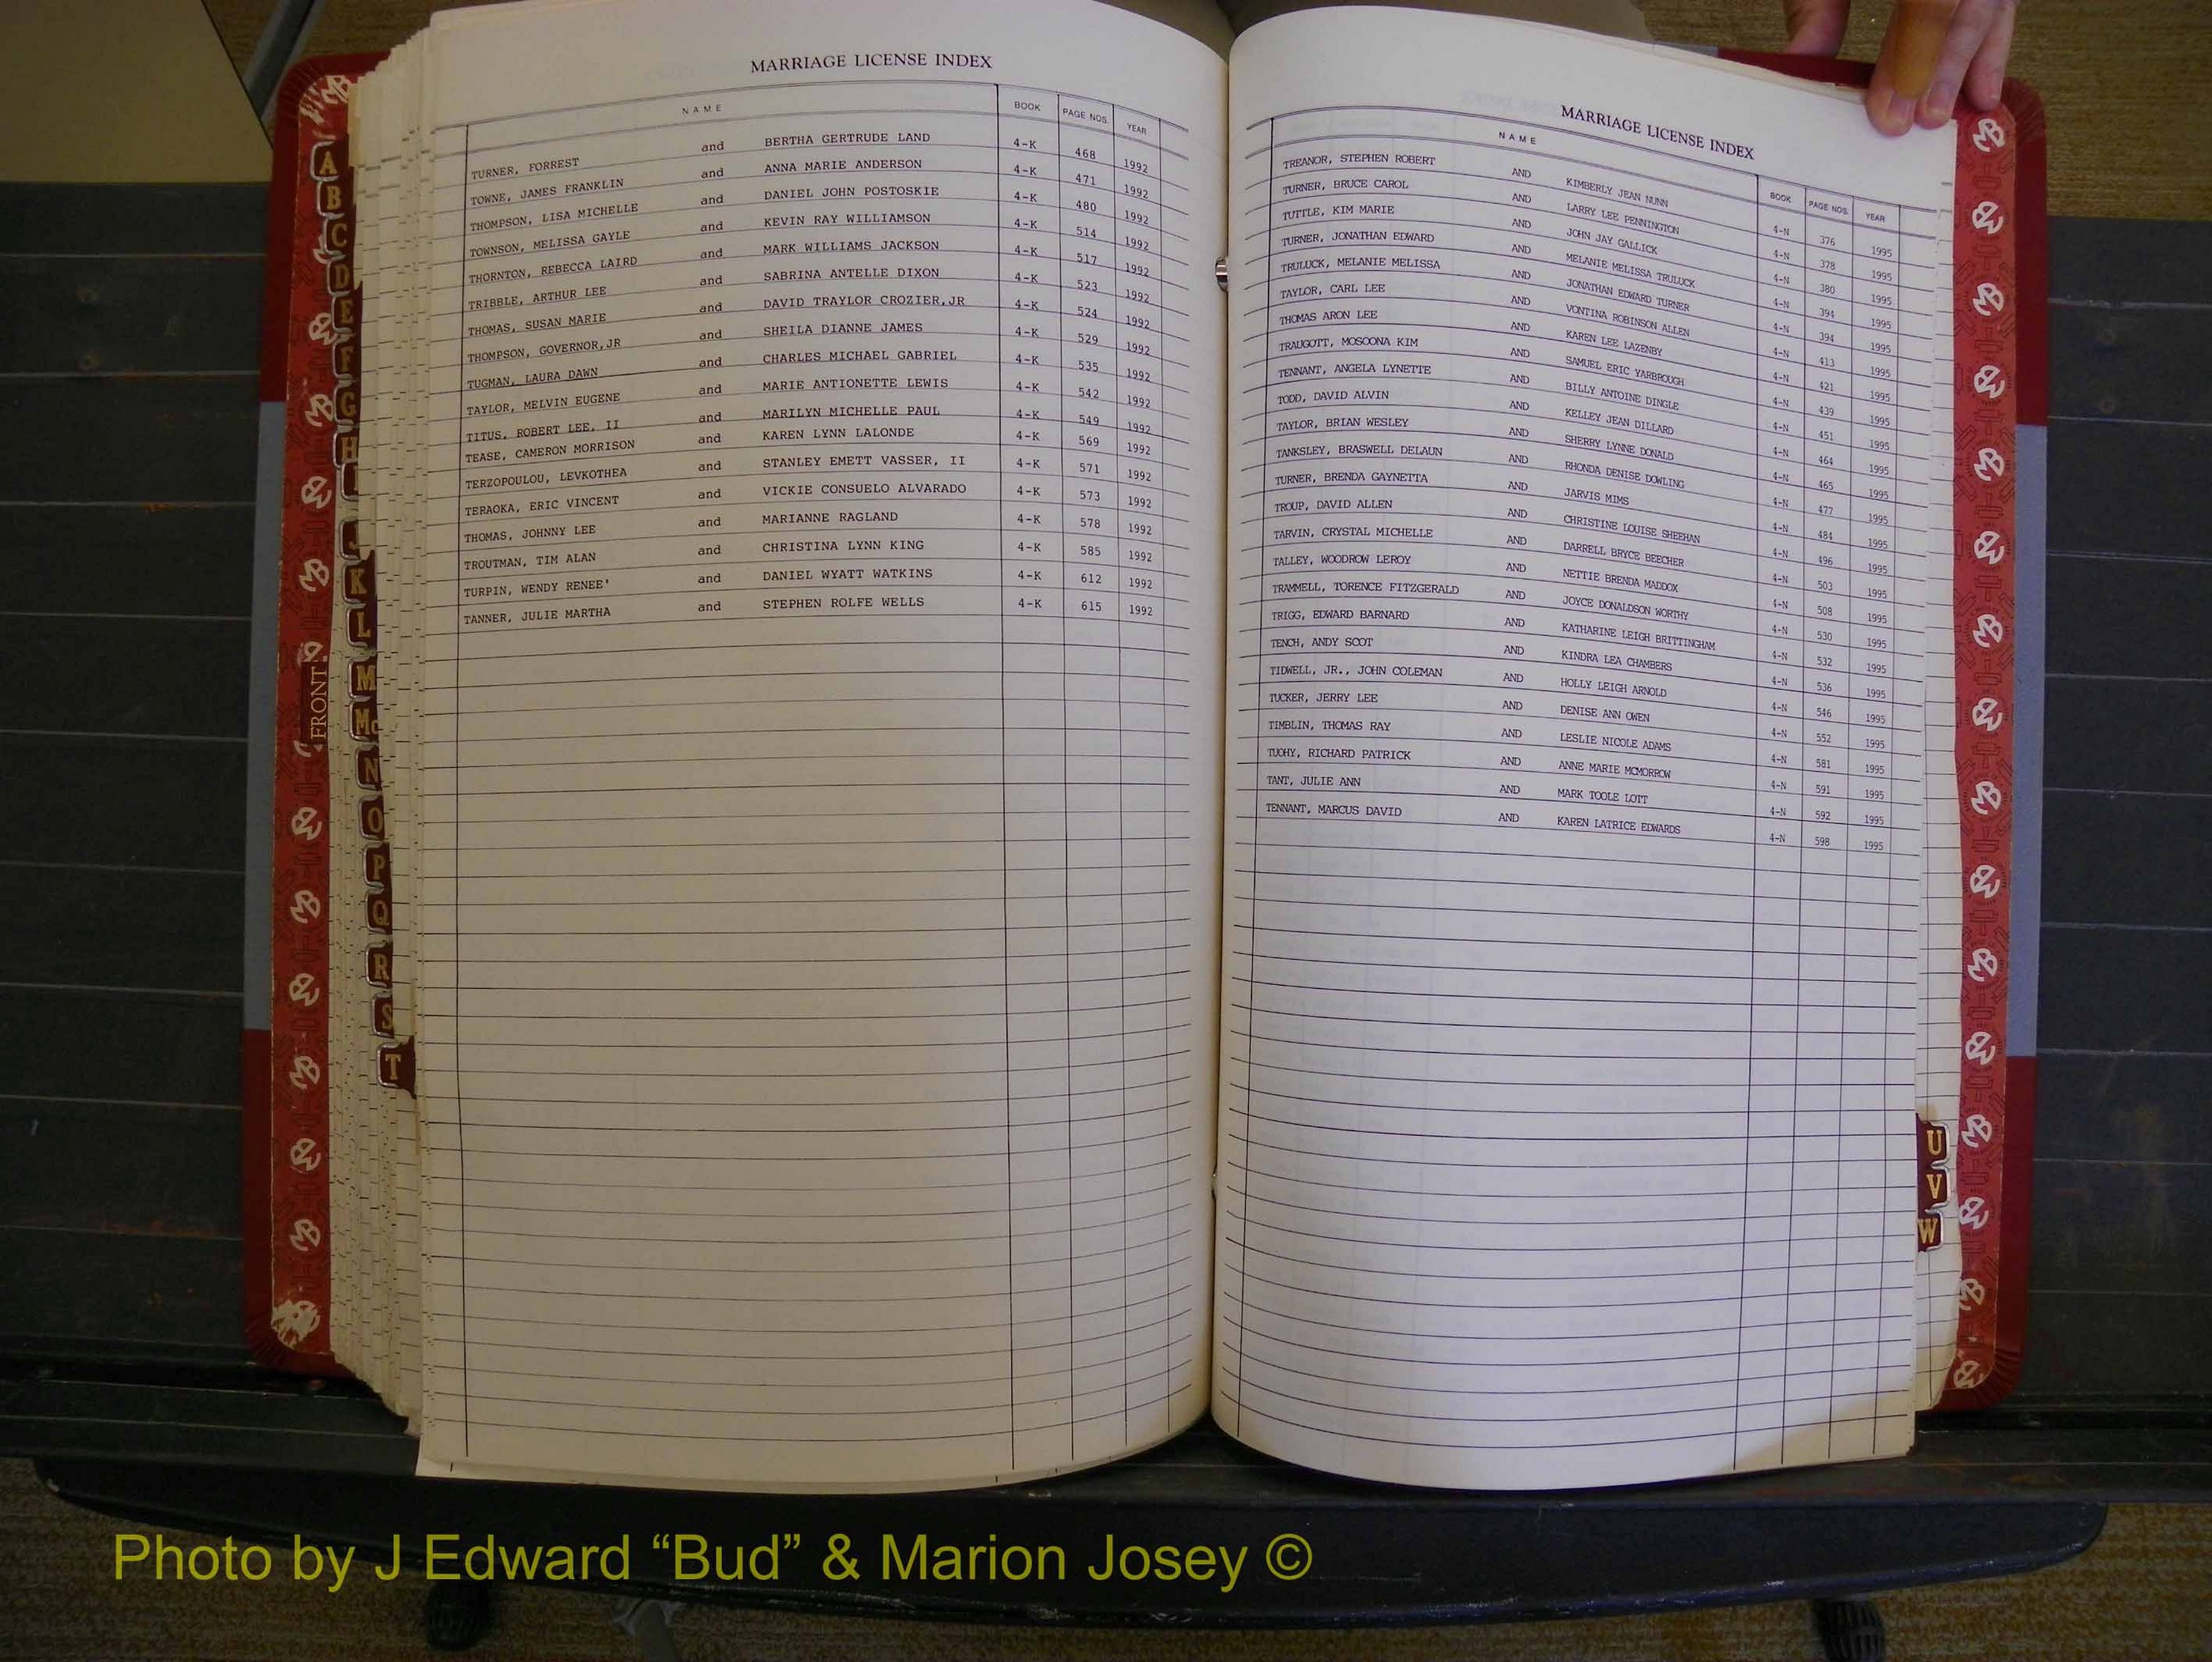 MARRIAGE LICENSE INDEX
NAME BOOK PAGE NOS. YEAR
TURNER, FORREST and BERTHA GERTRUDE LAND 4-K 468 1992
TOWNE, JAMES FRANKLIN and ANNA MARIE ANDERSON 4-K 471 1992
THOMPSON, LISA MICHELLE and DANIEL JOHN POSTOSKIE 4-K 480 1992
TOWNSON, MELISSA GAYLE and KEVIN RAY WILLIAMSON 4-K 514 1992
THORNTON, REBECCA LAIRD and MARK WILLIAMS JACKSON 4-K 517 1992
TRIBBLE, ARTHUR LEE and SABRINA ANTELLE DIXON 4-K 523 1992
THOMAS, SUSAN MARIE and DAVID TRAYLOR CROZIER,JR 4-K 524 1992
THOMPSON, GOVERNOR,JR and SHEILA DIANNE JAMES 4-K 529 1992
TUGMAN, LAURA DAWN and CHARLES MICHAEL GABRIEL 4-K 535 1992
TAYLOR, MELVIN EUGENE and MARIE ANTIONETTE LEWIS 4-K 542 1992
TITUS, ROBERT LEE, II and MARILYN MICHELLE PAUL 4-K 549 1992
TEASE, CAMERON MORRISON and KAREN LYNN LALONDE 4-K 569 1992
TERZOPOULOU, LEVKOTHEA and STANLEY EMETT VASSER, II 4-K 571 1992
TERAOKA, ERIC VINCENT and VICKIE CONSUELO ALVARADO 4-K 573 1992
THOMAS, JOHNNY LEE and MARIANNE RAGLAND 4-K 578 1992
TROUTMAN, TIM ALAN and CHRISTINA LYNN KING 4-K 585 1992
TURPIN, WENDY RENEE' and DANIEL WYATT WATKINS 4-K 612 1992
TANNER, JULIE MARTHA and STEPHEN ROLFE WELLS 4-K 615 1992
MARRIAGE LICENSE INDEX
NAME BOOK PAGE NOS. YEAR
TREANOR, STEPHEN ROBERT AND KIMBERLY JEAN NUNN 4-N 376 1995
TURNER, BRUCE CAROL AND LARRY LEE PENNINGTON 4-N 378 1995
TUTTLE, KIM MARIE AND JOHN JAY GALLICK 4-N 380 1995
TURNER, JONATHAN EDWARD AND MELANIE MELISSA TRULUCK 4-N 394 1995
TRULUCK, MELANIE MELISSA AND JONATHAN EDWARD TURNER 4-N 394 1995
TAYLOR, CARL LEE AND VONTINA ROBINSON ALLEN 4-N 413 1995
THOMAS ARON LEE AND KAREN LEE LAZENBY 4-N 421 1995
TRAUGOTT, MOSOONA KIM AND SAMUEL ERIC YARBROUGH 4-N 439 1995
TENNANT, ANGELA LYNETTE AND BILLY ANTOINE DINGLE 4-N 451 1995
TODD, DAVID ALVIN AND KELLEY JEAN DILLARD 4-N 464 1995
TAYLOR, BRIAN WESLEY AND SHERRY LYNNE DONALD 4-N 465 1995
TANKSLEY, BRASWELL DELAUN AND RHONDA DENISE DOWLING 4-N 477 1995
TURNER, BRENDA GAYNETTA AND JARVIS MIMS 4-N 484 1995
TROUP, DAVID ALLEN AND CHRISTINE LOUISE SHEEHAN 4-N 496 1995
TARVIN, CRYSTAL MICHELLE AND DARRELL BRYCE BEECHER 4-N 503 1995
TALLEY, WOODROW LEROY AND NETTIE BRENDA MADDOX 4-N 508 1995
TRAMMELL, TORENCE FITZGERALD AND JOYCE DONALDSON WORTHY 4-N 530 1995
TRIGG, EDWARD BARNARD AND KATHARINE LEIGH BRITTINGHAM 4-N 532 1995
TENCH, ANDY SCOT AND KINDRA LEA CHAMBERS 4-N 536 1995
TIDWELL, JR., JOHN COLEMAN AND HOLLY LEIGH ARNOLD 4-N 546 1995
TUCKER, JERRY LEE AND DENISE ANN OWEN 4-N 552 1995
TIMBLIN, THOMAS RAY AND LESLIE NICOLE ADAMS 4-N 581 1995
TUOHY, RICHARD PATRICK AND ANNE MARIE MCMORROW 4-N 591 1995
TANT, JULIE ANN AND MARK TOOLE LOTT 4-N 592 1995
TENNANT, MARCUS DAVID AND KAREN LATRICE EDWARDS 4-N 598 1995
FRONT
A
B
C
D
E
F
G
H
I
J
K
L
M
Mc
N
O
P
Q
R
S
T
U
V
W
Photo by J Edward “Bud” & Marion Josey ©